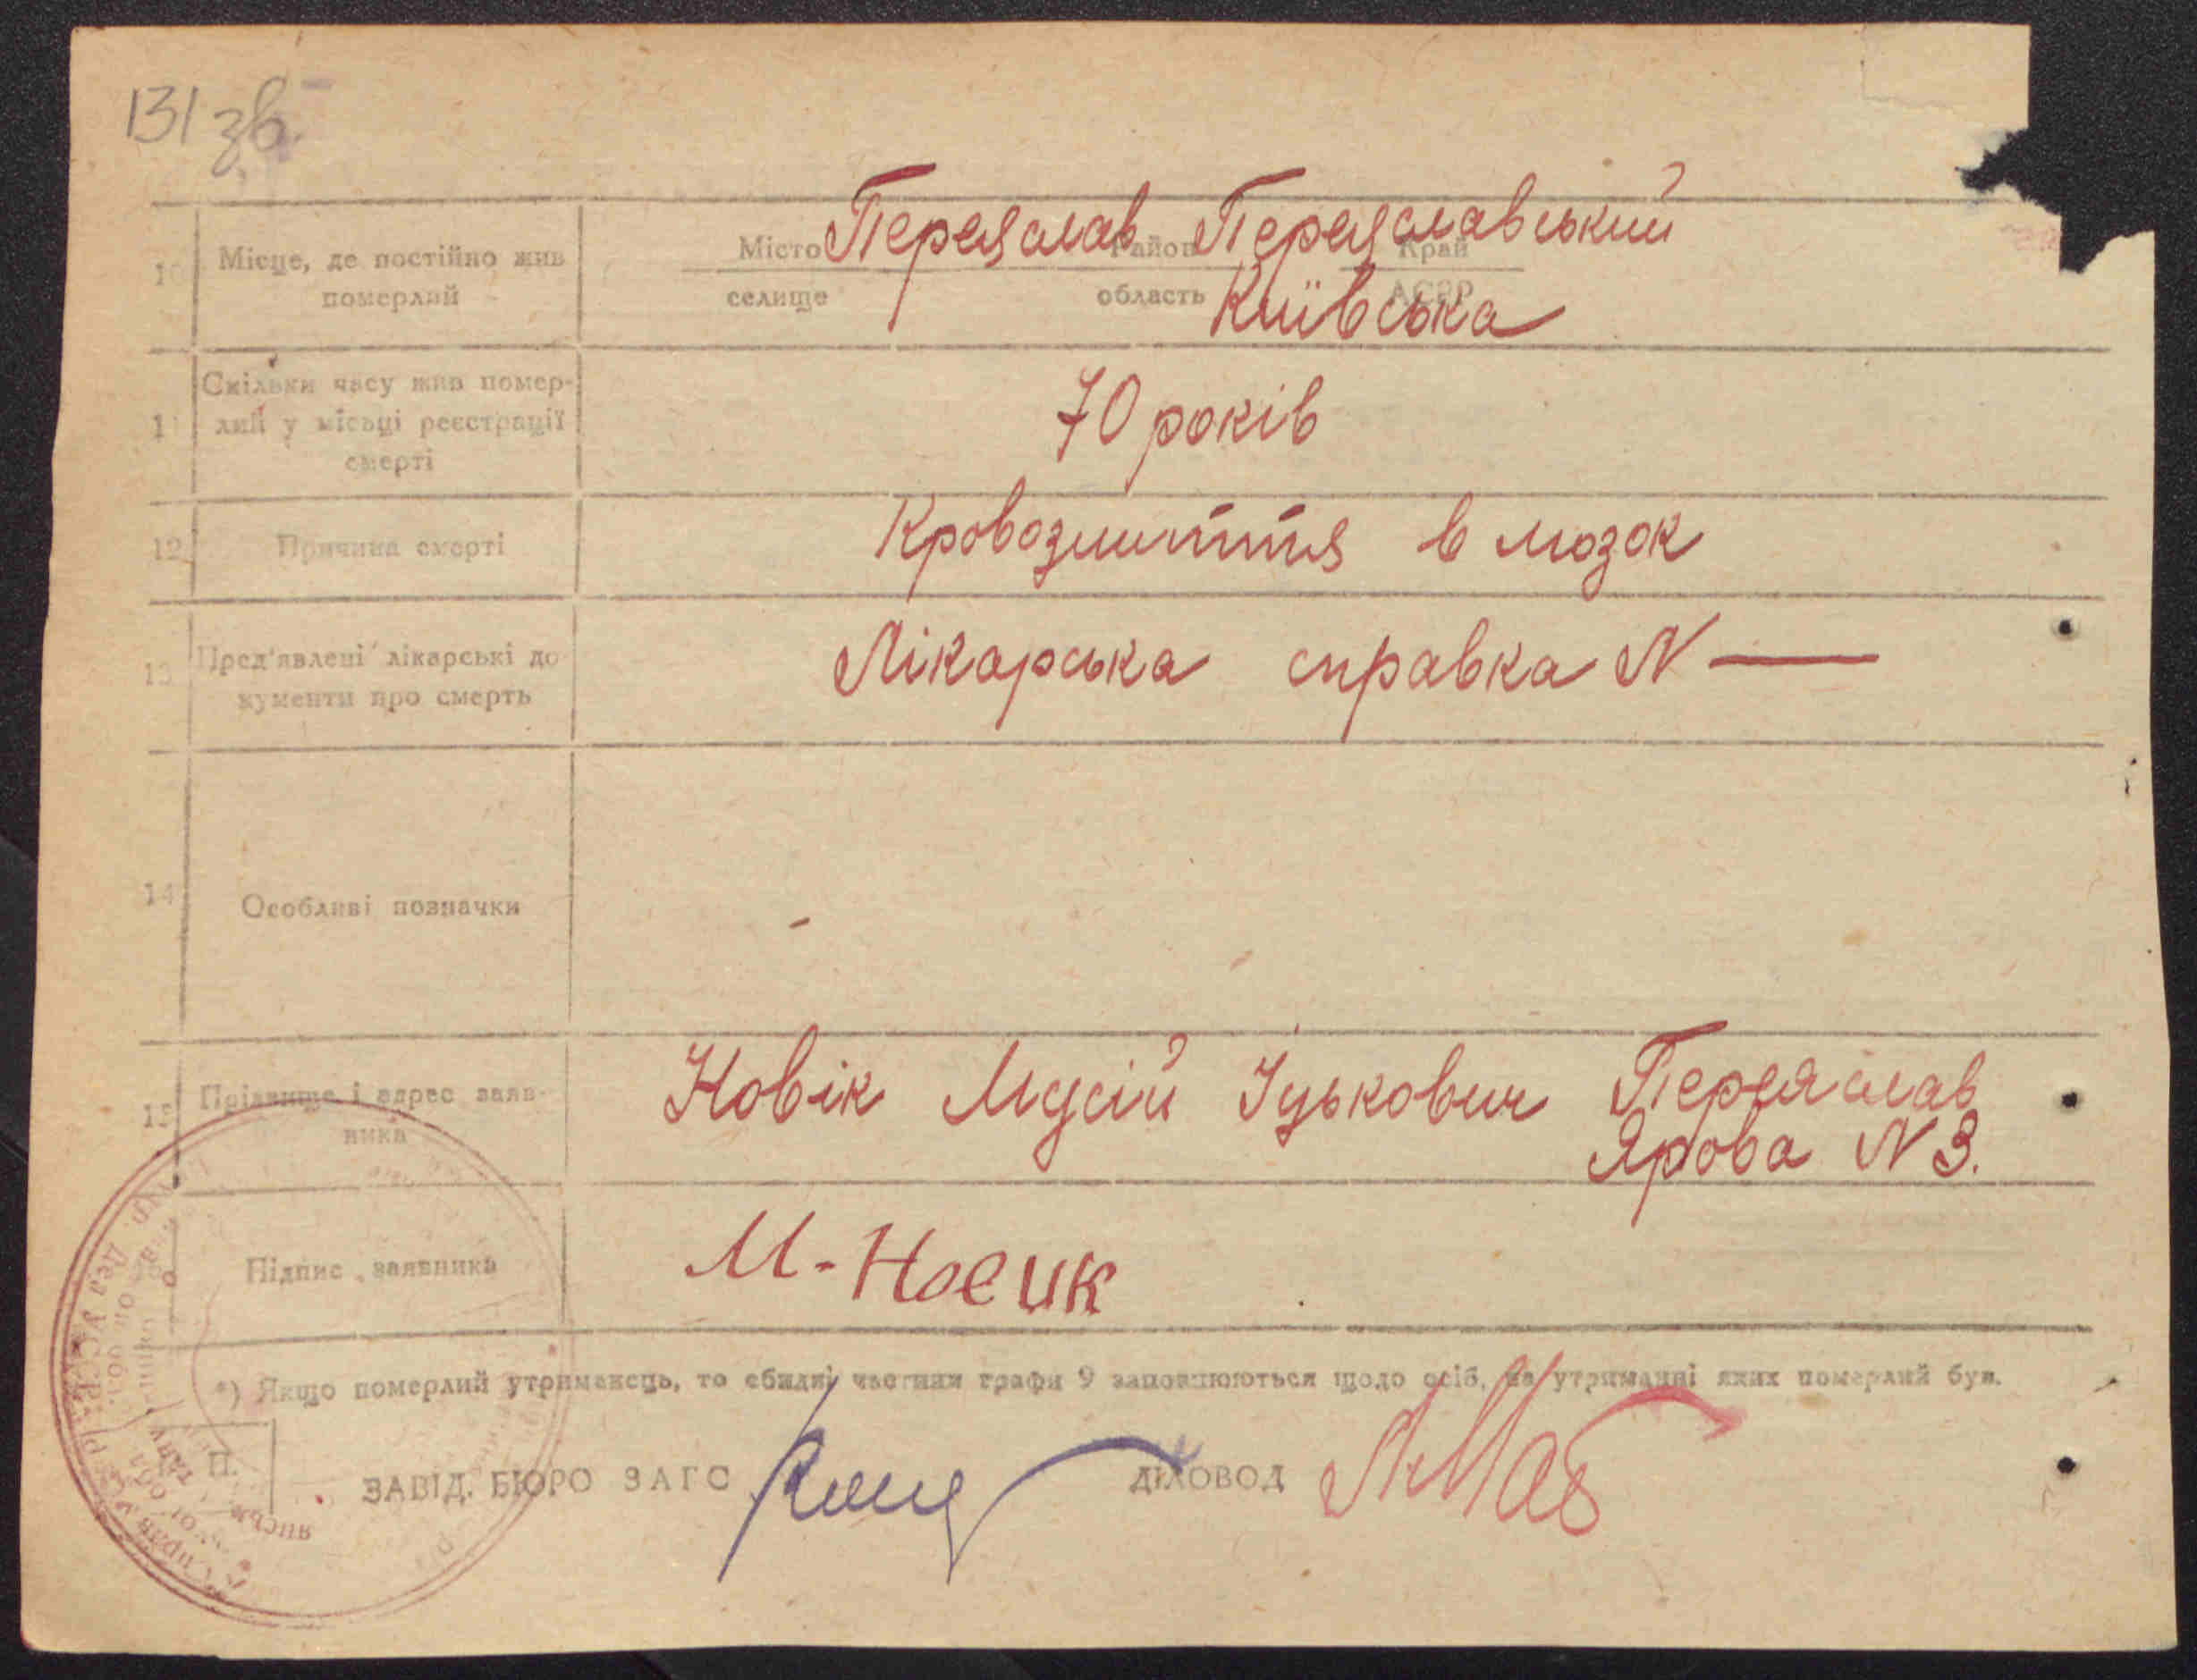 131 зв.
10 Місце, де постійно жив померлий
Місто Переяслав Район Переяславський Край
селище область Київська АСРР
11 Скільки часу жив помер-
лий у місьці реєстрації
смерті
70 років
12 Причина смерті
Кровозлиття в мозок
13 Пред'явлені лікарські до
кументи про смерть
Лікарська справка N —
14 Особливі позначки
-
15 Прізвище і адрес заяв-
ника
Новік Мусій Іцькович Переяслав
Ярова N 3.
Підпис заявника
М-Носик
*) Якщо померлий утриманець, то обидві частини графи 9 заповнюються щодо осіб, на утриманні яких померлий був.
П.
ЗАВІД. БЮРО ЗАГС
ДІЛОВОД